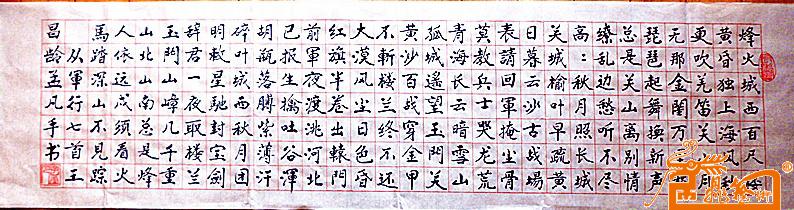 烽火城西百尺楼
黄昏独上海风秋
更吹羌笛关山月
无那金闺万里愁
琵琶起舞换新声
总是关山离别情
缭乱边愁听不尽
高高秋月照长城
关城榆叶早疏黄
日暮云沙古战場
表請回軍掩尘骨
莫教兵士哭龙荒
青海长云暗雪山
孤城遥望玉門关
黄沙百战穿金甲
不斩楼兰终不还
大漠风尘日色昏
红旗半卷出轅門
前軍夜渡洮河北
已报生擒吐谷渾
胡瓶落膊紫薄汗
碎叶城西秋月团
明敕星驰封宝剑
辞君一夜取楼兰
玉門山嶂几千重
山北山南总是烽
人依远戍须看火
马踏深山不見踪
从軍行七首 王
昌龄 孟凡手书